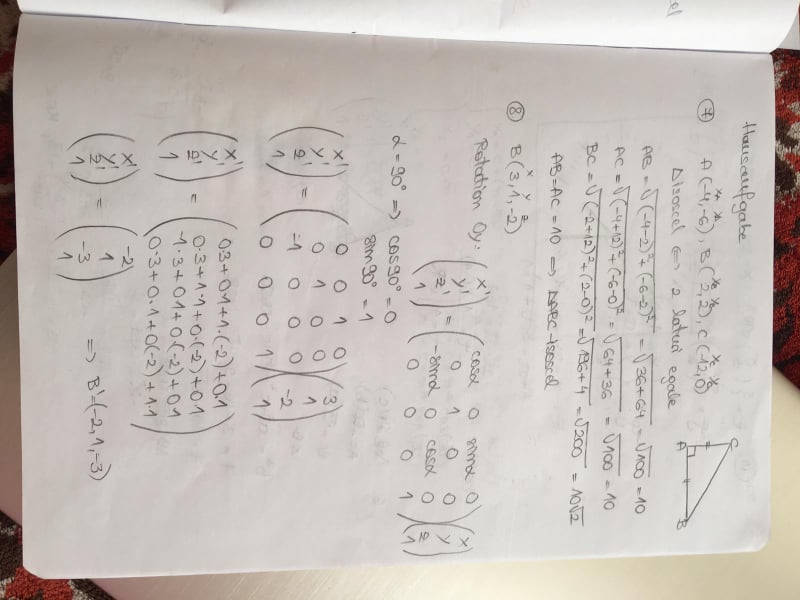 Hausaufgabe
⑦ A(-4,-6), B(2,2), C(-12,0)
Δ isoscel ⇔ 2 laturi egale
AB = √((-4-2)² + (-6-2)²) = √(36+64) = √100 = 10
AC = √((-4+12)² + (-6-0)²) = √(64+36) = √100 = 10
BC = √((-2+12)² + (2-0)²) = √(196+4) = √200 = 10√2
AB = AC = 10 ⇒ ΔABC - isoscel
C
A B
⑧ B(3,1,-2)
x y z
Rotation Oy: (x' y' z' 1) = (cosα 0 sinα 0
0 1 0 0
-sinα 0 cosα 0
0 0 0 1) (x y z 1)
α = 90° ⇒ cos90° = 0
sin90° = 1
(x' y' z' 1) = (0 0 1 0
0 1 0 0
-1 0 0 0
0 0 0 1) (3 1 -2 1)
(x' y' z' 1) = (0·3+0·1+1·(-2)+0·1
0·3+1·1+0·(-2)+0·1
-1·3+0·1+0(-2)+0·1
0·3+0·1+0(-2)+1·1)
(x' y' z' 1) = (-2 1 -3 1) ⇒ B'=(-2,1,-3)